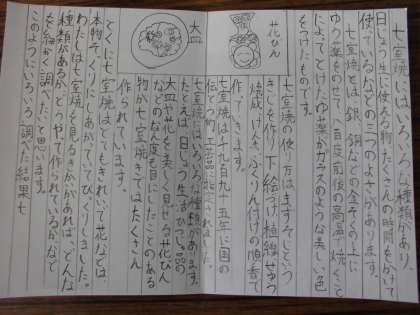 七宝焼にはいろいろな種類があり、
日じょう生活に使える物、たくさんの時間をかけて
使ているなどの三つのよさがあります。
七宝焼とは、銀、銅などの金ぞくの上に
ゆう薬をのせ、八百度前後の高温で焼くこと
によってとけたゆう薬がガラスのような美しい色
をつけたものです。
花びん
七宝焼の作り方は、まずそじという
きじを作り下絵つけ、植線、せゆう
焼成、けんま、ふくりん付けの順番で
作てきます。
七宝焼は、千九百九十五年に国の
伝とう的工芸品に指定されました。
大皿
七宝焼にはいろいろな種類があります。
たとえば、日じょう生活ひつじゅ品の
大皿や花を美しく見せる花びん
などのなん度も目にしたことのある
物が七宝焼きではたくさん
作られています。
とくに七宝焼はとてもきれいで花などは、
本物そくりにしあがていてびくりしました。
わたしは、七宝焼を見るきかいがあれば、どんな
種類があるか、どうやって作られているかなど
を細かく調べたいと思います。
このようにいろいろ調べた結果、七